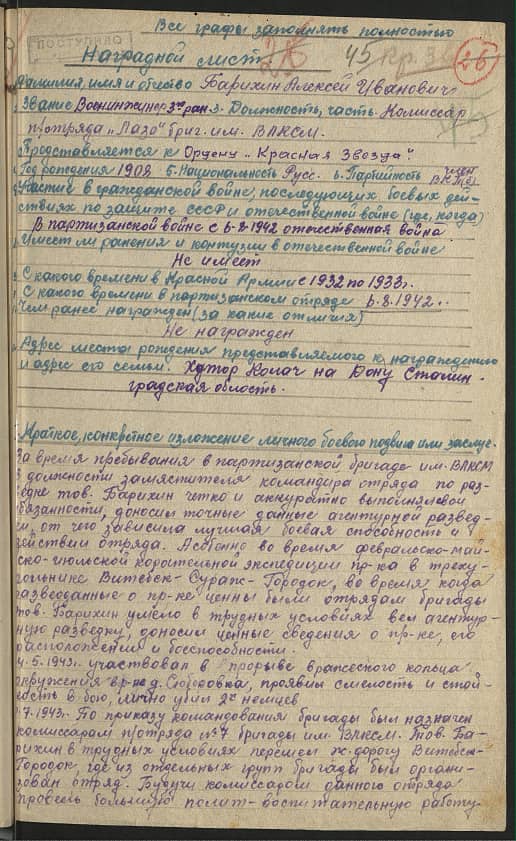 Все графы заполнять полностью
ПОСТУПИЛО
Наградной лист
45 кр. 3в
26
Фамилия, имя и отчество Барихин Алексей Иванович
Звание Военинженер 3го ран. 3. Должность, часть. Комиссар
п/отряда „Лазо" бриг. им. ВЛКСМ.
Представляется к Ордену „Красная Звезда".
Год рождения 1908 5. Национальность Русс. 6. Партийность член ВКП(б)
Участие в гражданской войне, последующих боевых дей-
ствиях по защите СССР и отечественной войне (где, когда)
В партизанской войне с 6-8-1942 отечественная война
Имеет ли ранения и контузии в отечественной войне
Не имеет
С какого времени в Красной Армии с 1932 по 1933 г.
С какого времени в партизанском отряде 6.8.1942 г.
Чем ранее награжден (за какие отличия)
Не награжден
Адрес места рождения представляемого к награждению
и адрес его семьи. Хутор Колач на Дону Сталин-
градская область.
Краткое, конкретное изложение личного боевого подвига или заслуг.
За время пребывания в партизанской бригаде им. ВЛКСМ
в должности заместителя командира отряда по раз-
ведке тов. Барихин четко и аккуратно выполнял свои
обязанности, доносил точные данные агентурной развед-
ки, от чего зависила лучшая боевая способность и
действии отряда. Особенно во время февральско-май-
ско-июльской карательной экспедиции пр-ка в треу-
гольнике Витебск-Сураж-Городок, во время когда
разведданные о пр-ке ценны были отрядам бригады
тов. Барихин умело в трудных условиях вел агентур-
ную разведку, доносил ценные сведения о пр-ке, его
расположении и боеспособности.
5.1943 г. участвовал в прорыве вражеского кольца
окружения в р-не д. проявил смелость и стой-
кость в бою, лично убил 2х немцев
7.1943 г. По приказу командования бригады был назначен
комиссаром п/отряда №7 бригады им. ВЛКСМ. Тов. Ба-
рихин в трудных условиях перешел ж-дорогу Витебск-
Городок, где из отдельных групп бригады был органи-
зован отряд. Будучи комиссаром данного отряда
провель большую полит-воспитательную работу